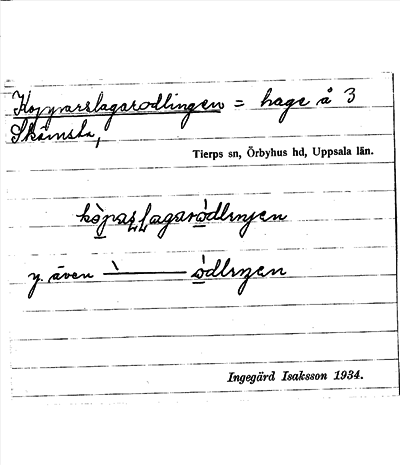 Kopparslagarodlingen = hage å 3
Skämsta,
Tierps sn, Örbyhus hd, Uppsala län.
kòpaṣḷagaròdlıŋen
y. även ˋ——— òdlıŋen
Ingegärd Isaksson 1934.